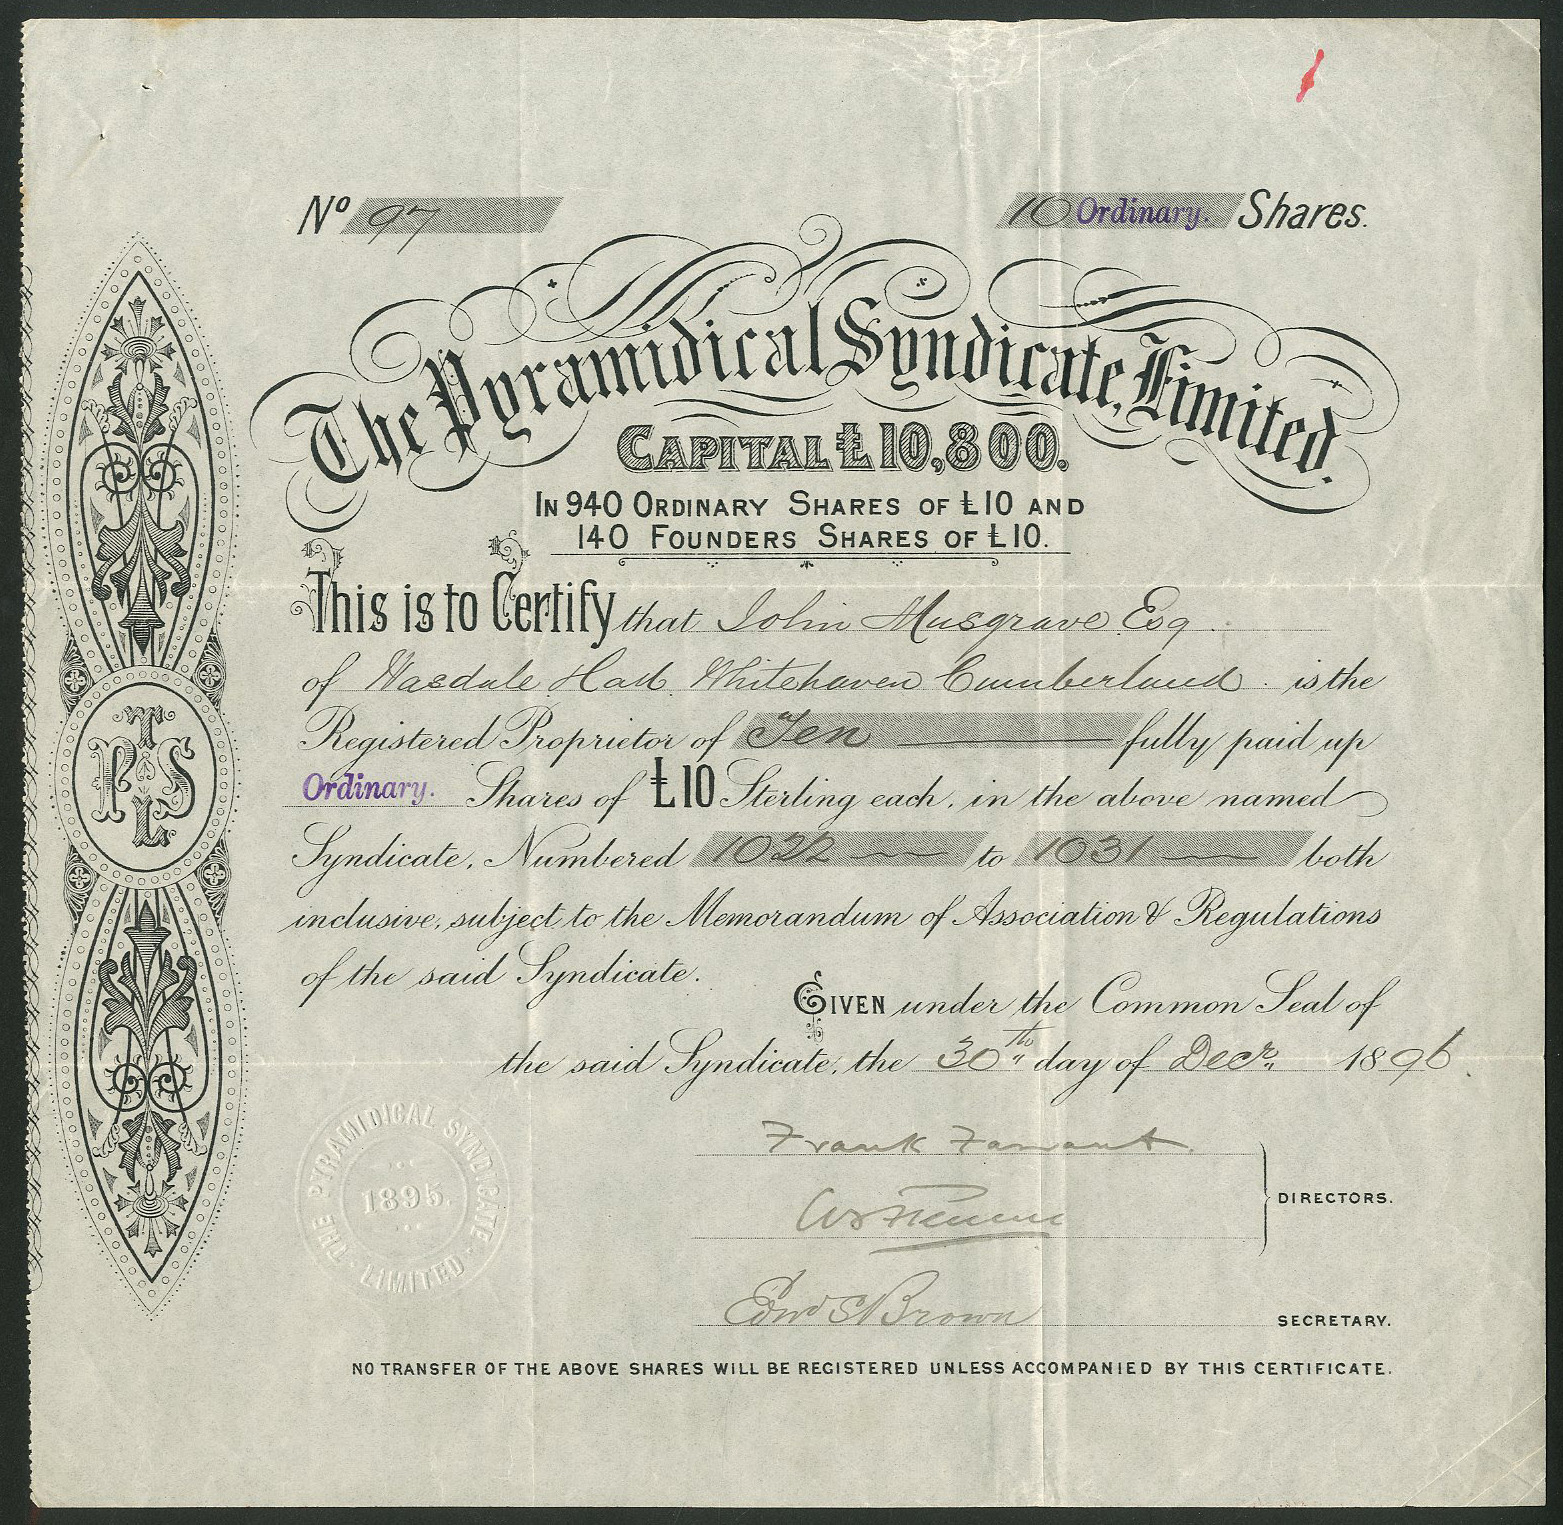 No 97
10 Ordinary. Shares.
The Pyramidical Syndicate, Limited.
CAPITAL £10,800.
IN 940 ORDINARY SHARES OF £10 AND
140 FOUNDERS SHARES OF £10.
This is to Certify that John Musgrave Esq
of Wasdale Hall Whitehaven Cumberland. is the
Registered Proprietor of Ten fully paid up
Ordinary. Shares of £10 Sterling each, in the above named
Syndicate, Numbered 1022 to 1031 both
inclusive, subject to the Memorandum of Association & Regulations
of the said Syndicate.
GIVEN under the Common Seal of
the said Syndicate, the 30th day of Decr. 1896.
Frank
DIRECTORS.
Edwd S Brown
SECRETARY.
NO TRANSFER OF THE ABOVE SHARES WILL BE REGISTERED UNLESS ACCOMPANIED BY THIS CERTIFICATE.
T
P S
L
THE PYRAMIDICAL SYNDICATE LIMITED
1895.